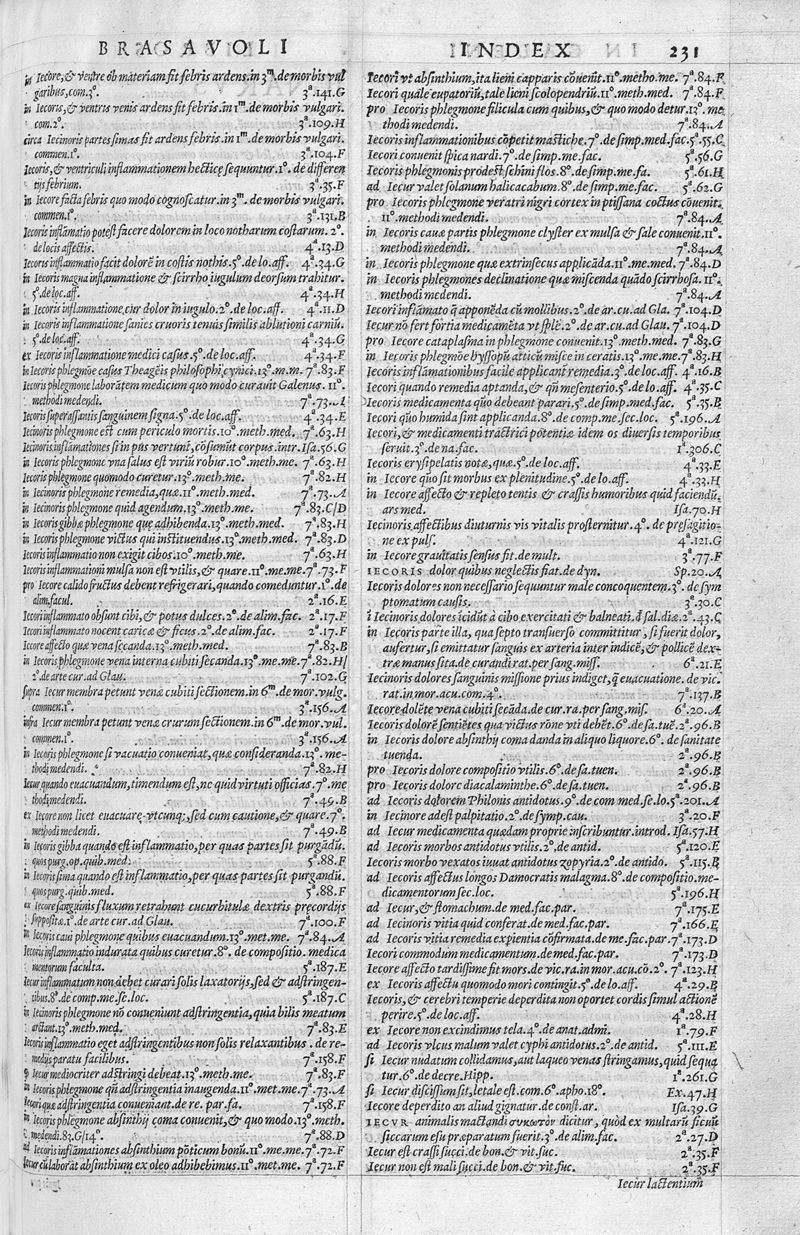 BRASAVOLI INDEX 231
in Iecore, & ventre ob materiam fit febris ardens. in 3m. de morbis vul
garibus, com. 3º. 3ª.141.G
in Iecoris, & ventris venis ardens fit febris. in 1m. de morbis vulgari.
com. 2º. 3ª.109.H
circa Iecinoris partes simas fit ardens febris. in 1m. de morbis vulgari.
commen. 1º. 3ª.104.F
Iecoris, & ventriculi inflammationem hecticę sequuntur. 1º. de differen
tijs febrium. 3ª.35.F
in Iecore facta febris quo modo cognoscatur. in 3m. de morbis vulgari.
commen. 1º. 3ª.131.B
Iecoris inflāmatio potest facere dolorem in loco notharum costarum. 2º.
de locis affectis. 4ª.13.D
Iecoris inflammatio facit dolorē in costis nothis. 5º. de lo. aff. 4ª.34.G
in Iecoris magna inflammatione & scirrho iugulum deorsum trahitur.
5º. de loc. aff. 4ª.34.H
in Iecoris inflammatione, cur dolor in iugulo. 2º. de loc. aff. 4ª.11.D
in Iecoris inflammatione sanies cruoris tenuis similis ablutioni carniū.
5º. de loc. aff. 4ª.34.G
ex Iecoris inflammatione medici casus. 5º. de loc. aff. 4ª.34.F
in Iecoris phlegmōe casus Theagēis philosophi cynici. 13º. m. m. 7ª.83.F
Iecoris phlegmone laborātem medicum quo modo curauit Galenus. 11º.
methodi medendi. 7ª.73.A
Iecoris superassantis sanguinem signa. 5º. de loc. aff. 4ª.34.E
Iecinoris phlegmone est cum periculo mortis. 10º. meth. med. 7ª.63.H
Iecinoris inflāmationes si in pus vertunt, cōsumūt corpus. intr. Isa.56.G
in Iecoris phlegmone vna salus est viriū robur. 10º. meth. me. 7ª.63.H
Iecoris phlegmone quomodo curetur. 13º. meth. me. 7ª.82.H
in Iecoris phlegmone remedia, quæ. 11º. meth. med. 7ª.73.A
in Iecinoris phlegmone quid agendum. 13º. meth. me. 7ª.83.C/D
in Iecoris gibbæ phlegmone quę adhibenda. 13º. meth. med. 7ª.83.H
in Iecoris phlegmone victus qui instituendus. 13º. meth. med. 7ª.83.D
Iecoris inflammatio non exigit cibos. 10º. meth. me. 7ª.63.H
Iecoris inflammationi mulsa non est vtilis, & quare. 11º. me. me. 7ª.73.F
pro Iecore calido fructus debent refrigerari, quando comeduntur. 1º. de
alim. facul. 2ª.16.E
Iecori inflammato obsunt cibi, & potus dulces. 2º. de alim. fac. 2ª.17.F
Iecori inflammato nocent caricæ & ficus. 2º. de alim. fac. 2ª.17.F
Iecore affecto quæ vena secanda. 13º. meth. med. 7ª.83.B
in Iecoris phlegmone vena interna cubiti secanda. 13º. me. me. 7ª.82.H/
2º. de arte cur. ad Glau. 7ª.102.G
supra Iecur membra petunt venæ cubiti sectionem. in 6m. de mor. vulg.
commen. 1º. 3ª.156.A
infra Iecur membra petunt venæ crurum sectionem. in 6m. de mor. vul.
commen. 1º. 3ª.156.A
in Iecoris phlegmone si vacuatio conueniat, quæ consideranda. 13º. me-
thodi medendi. 7ª.82.H
Iecur quando euacuandum, timendum est, ne quid virtuti officias. 7º. me
thodi medendi. 7ª.49.B
ex Iecore non licet euacuare vtcunq;, sed cum cautione, & quare. 7º.
methodi medendi. 7ª.49.B
in Iecoris gibba quando est inflammatio, per quas partes sit purgādū.
quos purg. op. quib. med. 5ª.88.F
in Iecoris sima quando est inflammatio, per quas partes sit purgandū.
quos purg. quib. med. 5ª.88.F
ex Iecore sanguinis fluxum retrahunt cucurbitulæ dextris precordijs
suppositæ. 1º. de arte cur. ad Glau. 7ª.100.F
in Iecoris caui phlegmone quibus euacuandum. 13º. met. me. 7ª.84.A
Iecoris inflammatio indurata quibus curetur. 8º. de compositio. medica
mentorum faculta. 5ª.187.E
Iecur inflammatum non debet curari solis laxatorijs, sed & adstringen-
tibus. 8º. de comp. me. se. loc. 5ª.187.C
in Iecinoris phlegmone nō conueniunt adstringentia, quia bilis meatum
arctant. 13º. meth. med. 7ª.83.E
Iecoris inflammatio eget adstringentibus non solis relaxantibus. de re-
medijs paratu facilibus. 7ª.158.F
Iecur mediocriter adstringi debeat. 13º. meth. me. 7ª.83.F
in Iecoris phlegmone qñ adstringentia inaugenda. 11º. met. me. 7ª.73.A
Iecori quæ adstringentia conueniant. de re. par. fa. 7ª.158.F
in Iecoris phlegmone absinthij coma conuenit, & quo modo. 13º. meth.
medendi. 83.G/14º. 7ª.88.D
ad Iecoris inflāmationes absinthium pōticum bonū. 11º. me. me. 7ª.72.F
Iecur cū laborat absinthium ex oleo adhibebimus. 11º. met. me. 7ª.72.F
Iecori vt absinthium, ita lieni capparis cōuenit. 11º. metho. me. 7ª.84.F
Iecori quale eupatoriū, tale lieni scolopendriū. 11º. meth. med. 7ª.84.F
pro Iecoris phlegmone filicula cum quibus, & quo modo detur. 13º. me
thodi medendi. 7ª.84.A
Iecoris inflammationibus cōpetit mastiche. 7º. de simp. med. fac. 5ª.55.C
Iecori conuenit spica nardi. 7º. de simp. me. fac. 5ª.56.G
Iecoris phlegmonis prodest schini flos. 8º. de simp. me. fa. 5ª.61.H
ad Iecur valet solanum halicacabum. 8º. de simp. me. fac. 5ª.62.G
pro Iecoris phlegmone veratri nigri cortex in ptissana coctus cōuenit.
11º. methodi medendi. 7ª.84.A
in Iecoris cauæ partis phlegmone clyster ex mulsa & sale conuenit. 11º.
methodi medendi. 7ª.84.A
in Iecoris phlegmone quæ extrinsecus applicāda. 11º. me. med. 7ª.84.D
in Iecoris phlegmones declinatione quæ miscenda quādo scirrhosa. 11º.
methodi medendi. 7ª.84.A
Iecori inflāmato q̄ apponēda cū mollibus. 2º. de ar. cu. ad Gla. 7ª.104.D
Iecur nō fert fortia medicamēta vt splē. 2º. de ar. cu. ad Glau. 7ª.104.D
pro Iecore cataplasma in phlegmone conuenit. 13º. meth. med. 7ª.83.G
in Iecoris phlegmōe hyssopū atticū misce in ceratis. 13º. me. me. 7ª.83.H
Iecoris inflāmationibus facile applicant remedia. 3º. de loc. aff. 4ª.16.B
Iecori quando remedia aptanda, & qñ mesenterio. 5º. de lo. aff. 4ª.35.C
Iecoris medicamenta quō debeant parari. 5º. de simp. med. fac. 5ª.35.B
Iecori quō humida sint applicanda. 8º. de comp. me. sec. loc. 5ª.196.A
Iecori, & medicamenti tractrici potentiæ idem os diuersis temporibus
seruit. 3º. de na. fac. 1ª.306.C
Iecoris erysipelatis notæ, quæ. 5º. de loc. aff. 4ª.33.E
in Iecore quō sit morbus ex plenitudine. 5º. de lo. aff. 4ª.33.H
in Iecore affecto & repleto tentis & crassis humoribus quid faciendū.
ars med. Isa.70.H
Iecinoris affectibus diuturnis vis vitalis prosternitur. 4º. de præsagitio-
ne ex puls. 4ª.121.G
in Iecore grauitatis sensus fit. de mult. 3ª.77.F
IECORIS dolor quibus neglectis fiat. de dyn. Sp.20.A
Iecoris dolores non necessario sequuntur male concoquentem. 3º. de sym
ptomatum causis. 3ª.30.C
ī Iecinoris dolores īcidūt à cibo exercitati & balneati. d̄ sal. diæ. 2ª.43.C
in Iecoris parte illa, qua septo transuerso committitur, si fuerit dolor,
aufertur, si emittatur sanguis ex arteria inter indicē, & pollicē dex-
træ manus sita. de curandi rat. per sang. miss. 6ª.21.E
Iecinoris dolores sanguinis missione prius indiget, q̄ euacuatione. de vic.
rat. in mor. acu. com. 4º. 7ª.137.B
Iecore dolēte vena cubiti secāda. de cur. ra. per sang. mis. 6ª.20.A
Iecoris dolorē sentiētes qua victus rōne vti debēt. 6º. de sa. tuē. 2ª.96.B
in Iecoris dolore absinthij coma danda in aliquo liquore. 6º. de sanitate
tuenda. 2ª.96.B
pro Iecoris dolore compositio vtilis. 6º. de sa. tuen. 2ª.96.B
pro Iecoris dolore diacalaminthe. 6º. de sa. tuen. 2ª.96.B
ad Iecoris dolorem Philonis antidotus. 9º. de com med. se. lo. 5ª.201.A
in Iecinore adest palpitatio. 2º. de symp. cau. 3ª.20.F
ad Iecur medicamenta quædam proprie inscribuntur. introd. Isa.57.H
ad Iecoris morbos antidotus vtilis. 2º. de antid. 5ª.120.E
Iecoris morbo vexatos iuuat antidotus zopyria. 2º. de antido. 5ª.115.B
ad Iecoris affectus longos Damocratis malagma. 8º. de compositio. me-
dicamentorum sec. loc. 5ª.196.H
ad Iecur, & stomachum. de med. fac. par. 7ª.175.E
ad Iecinoris vitia quid conferat. de med. fac. par. 7ª.166.E
ad Iecoris vitia remedia expientia cōfirmata. de me. fac. par. 7ª.173.D
Iecori commodum medicamentum. de med. fac. par. 7ª.173.D
Iecore affecto tardissime fit mors. de vic. ra. in mor. acu. cō. 2º. 7ª.123.H
ex Iecoris affectu quomodo mori contingit. 5º. de lo. aff. 4ª.29.B
Iecoris, & cerebri temperie deperdita non oportet cordis simul actionē
perire. 5º. de loc. aff. 4ª.28.H
ex Iecore non excindimus tela. 4º. de anat. admi. 1ª.79.F
ad Iecoris vlcus malum valet cyphi antidotus. 2º. de antid. 5ª.111.E
si Iecur nudatum collidamus, aut laqueo venas stringamus, quid sequa
tur. 6º. de decre. Hipp. 1ª.261.G
si Iecur discissum sit, letale est. com. 6º. apho. 18º. Ex.47.H
Iecore deperdito an aliud gignatur. de const. ar. Isa.39.G
IECVR animalis mactandi συκωτὸν dicitur, quòd ex multarū ficuū
siccarum esu præparatum fuerit. 3º. de alim. fac. 2ª.27.D
Iecur est crassi succi. de bon. & vit. suc. 2ª.35.F
Iecur non est mali succi. de bon. & vit. suc. 2ª.35.F
Iecur lactentium